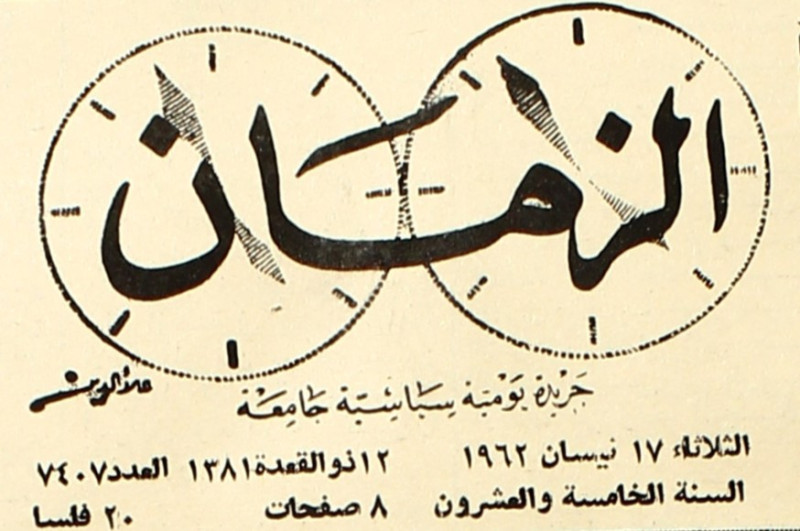 الزمان
جريدة يومية سياسية جامعة
علاء الدين
الثلاثاء ١٧ نيسان ١٩٦٢ ١٢ ذو القعدة ١٣٨١ العدد ٧٤٠٧
السنة الخامسة والعشرون ٨ صفحات ٢٠ فلسا